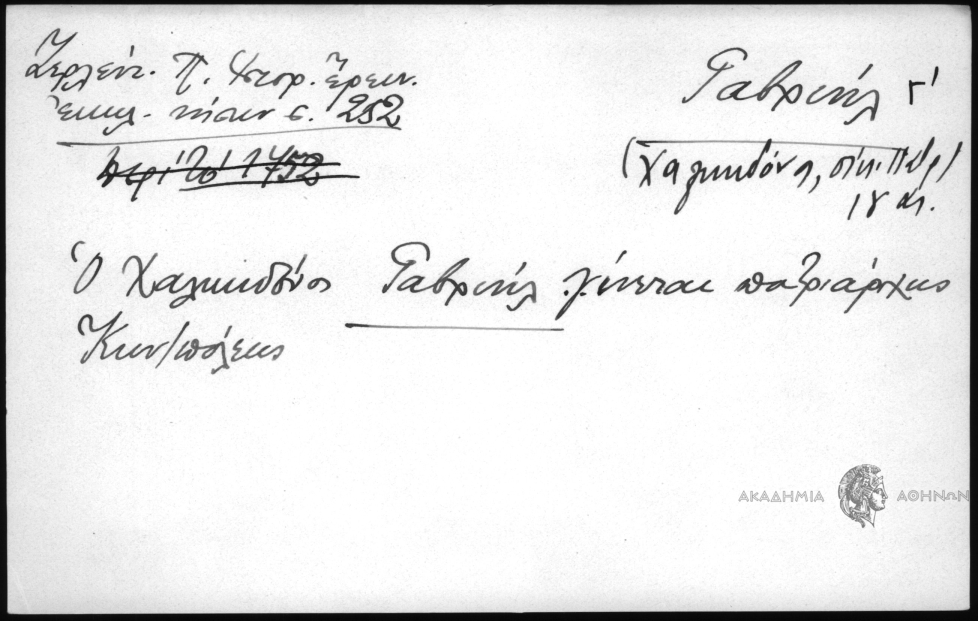 Ζερλέντ. Π. Ἱστορ. Ἔρευν.
Ἐκκλ. νήσων σ. 252
περὶ τὸ 1752
Γαβριὴλ Γ'
(Χαλκηδόνος, οἰκ. Πατρ)
18 αι.
Ὁ Χαλκηδόνος Γαβριὴλ γίνεται πατριάρχης
Κων/πόλεως
ΑΚΑΔΗΜΙΑ ΑΘΗΝΩΝ